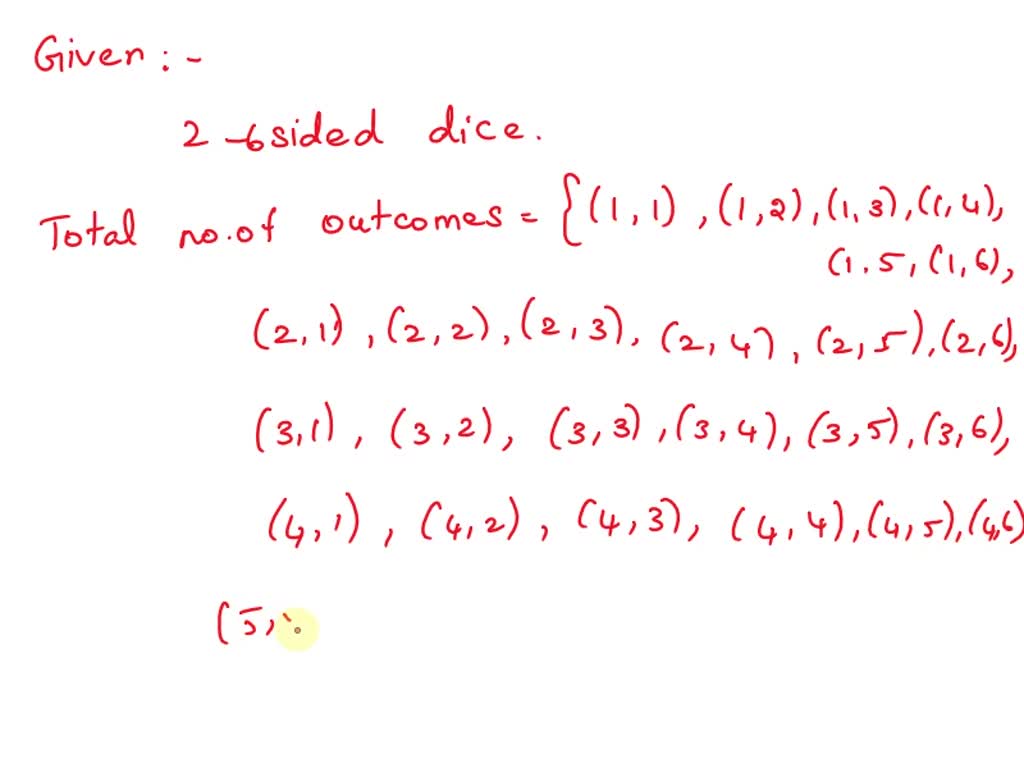 Given :-
2 -6sided dice.
Total no.of outcomes = {(1,1) ,(1,2),(1,3),(1,4),
(1.5,(1,6),
(2,1) ,(2,2),(2,3). (2,4) , (2,5),(2,6),
(3,1) , (3,2), (3,3),(3,4),(3,5),(3,6),
(4,1) , (4,2) , (4,3), (4,4),(4,5),(4,6)
(5,